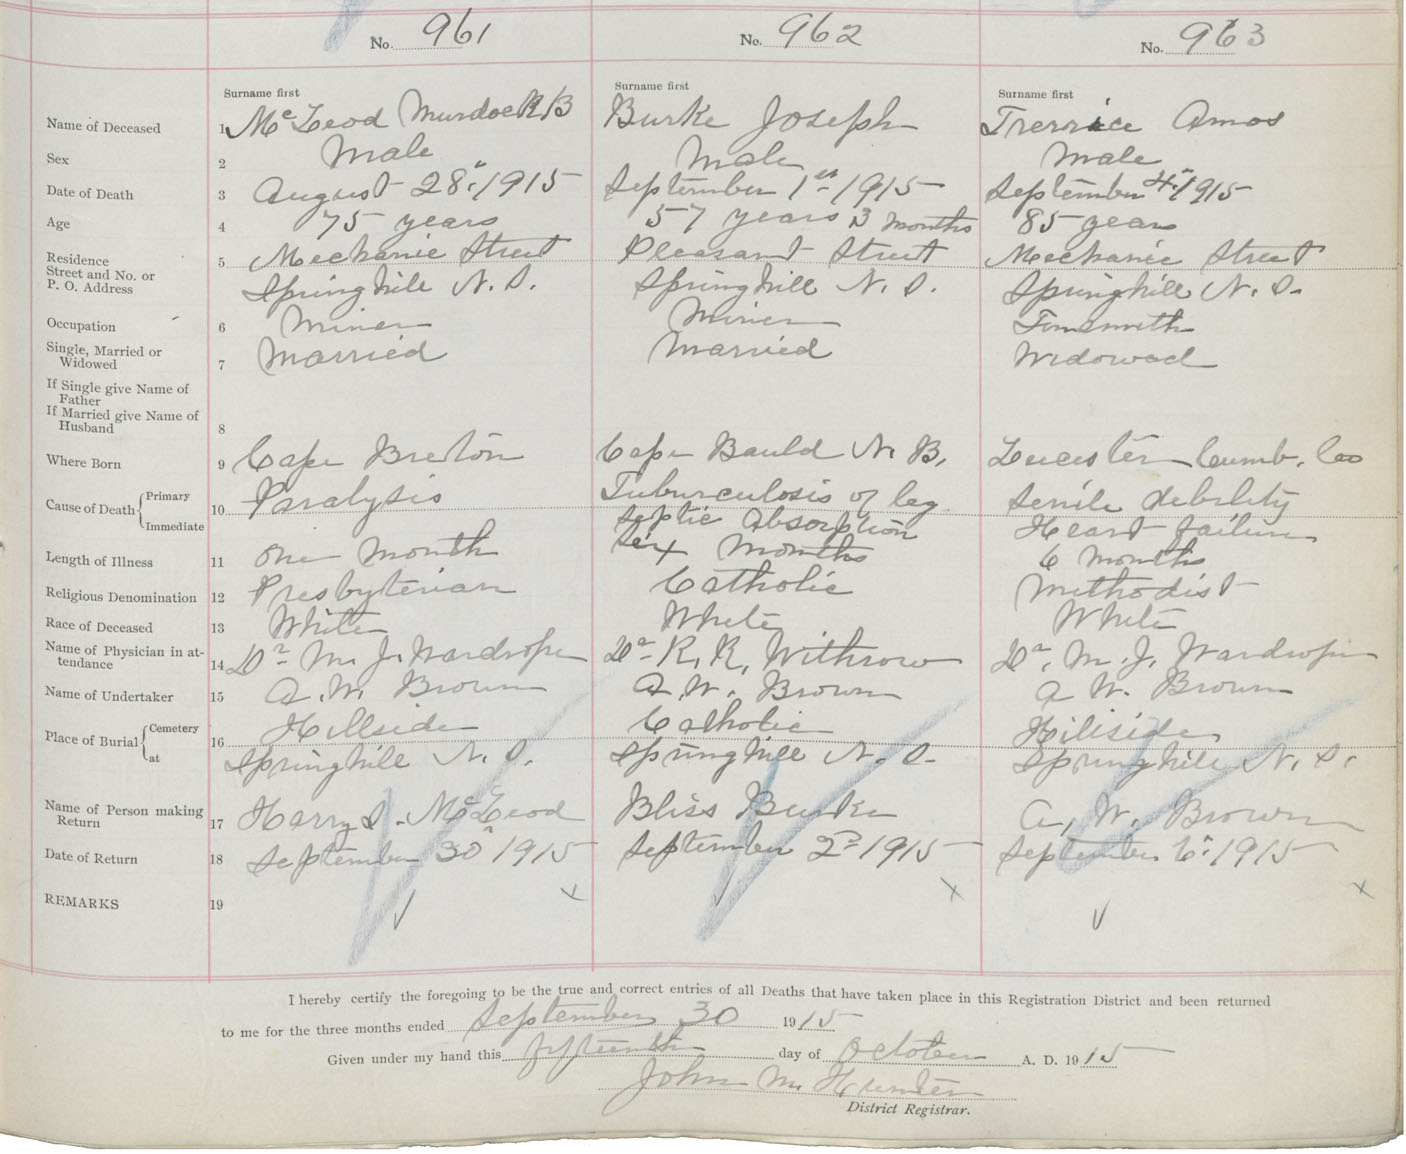 No. 961 No. 962 No. 963
Surname first Surname first Surname first
Name of Deceased 1 McLeod Murdock B Burke Joseph Trerrice Amos
Sex 2 Male Male Male
Date of Death 3 August 28th 1915 September 1st 1915 September 4th 1915
Age 4 75 years 57 years 3 months 85 years
Residence 5 Mechanic Street Pleasant Street Mechanic Street
Street and No. or
P. O. Address Springhill N. S. Springhill N. S. Springhill N. S.
Occupation 6 Miner Miner Tinsmith
Single, Married or
Widowed 7 Married Married Widowed
If Single give Name of
Father
If Married give Name of
Husband 8
Where Born 9 Cape Breton Cape Bauld N. B. Leicester Cumb. Co
Cause of Death { Primary 10 Paralysis Tuburculosis of leg Senile debility
Immediate Septic Absorption Heart failure
Length of Illness 11 one Month Six Months 6 Months
Religious Denomination 12 Presbyterian Catholic Methodist
Race of Deceased 13 White White White
Name of Physician in at-
tendance 14 Dr M. J. Wardrope Dr R. R. Withrow Dr. M. J. Wardrope
Name of Undertaker 15 A. W. Brown A. W. Brown A W. Brown
Place of Burial { Cemetery 16 Hillside Catholic Hillside
at Springhill N. S. Springhill N. S. Springhill N. S.
Name of Person making
Return 17 Harry S. McLeod Bliss Burke A. W. Brown
Date of Return 18 September 30th 1915 September 2nd 1915 September 6th 1915
REMARKS 19
I hereby certify the foregoing to be the true and correct entries of all Deaths that have taken place in this Registration District and been returned
to me for the three months ended September 30 1915
Given under my hand this fifteenth day of October A. D. 1915
John M. Hunter
District Registrar.